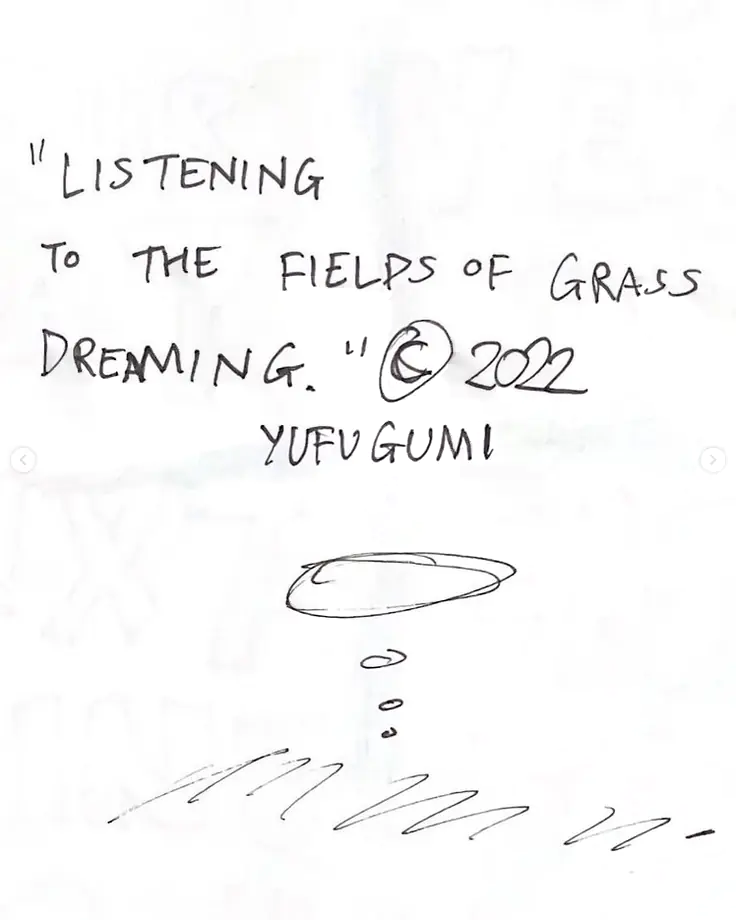 "LISTENING
TO THE FIELDS OF GRASS
DREAMING." © 2022
YUFUGUMI